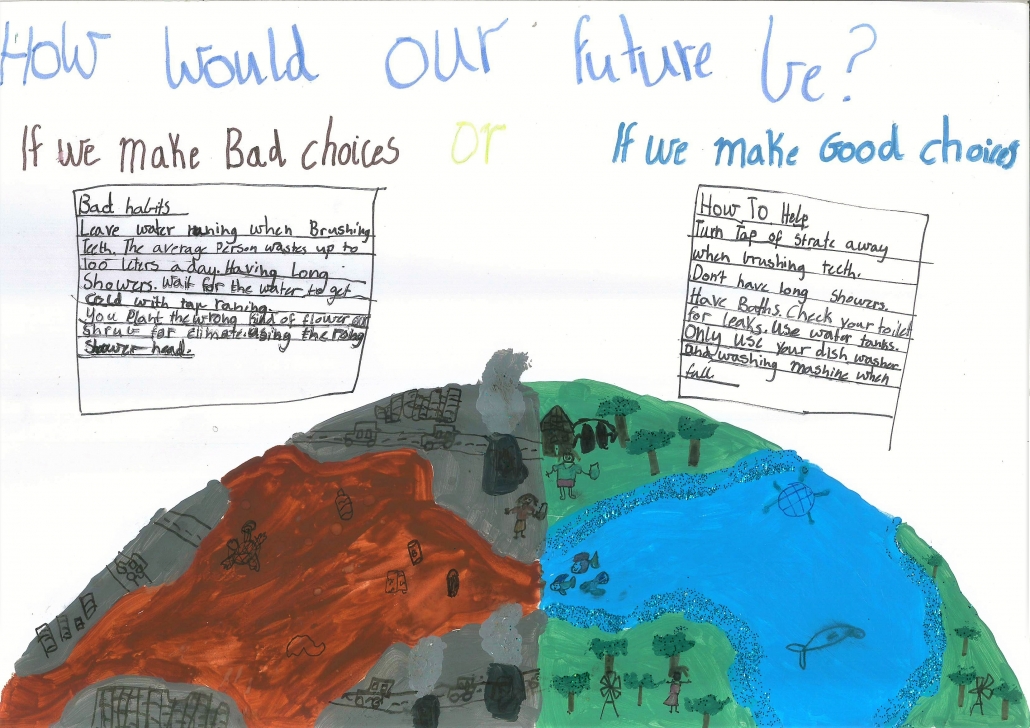 How would our future be?
If we make Bad choices or If we make Good choices
Bad habits
Leave water runing when Brushing
Teeth. The average Person wastes up to
100 liters a day. Having Long
Showers. Wait for the water to get
cold with tap raning.
You Plant the wrong kind of flower or
Shrub for climate. Using the rong
Shower head.
How To Help
Turn Tap of strate away
when brushing teeth.
Don't have long showers.
Have Baths. Check your toilet
for leaks. Use water tanks.
Only use your dish washer
and washing mashine when
full